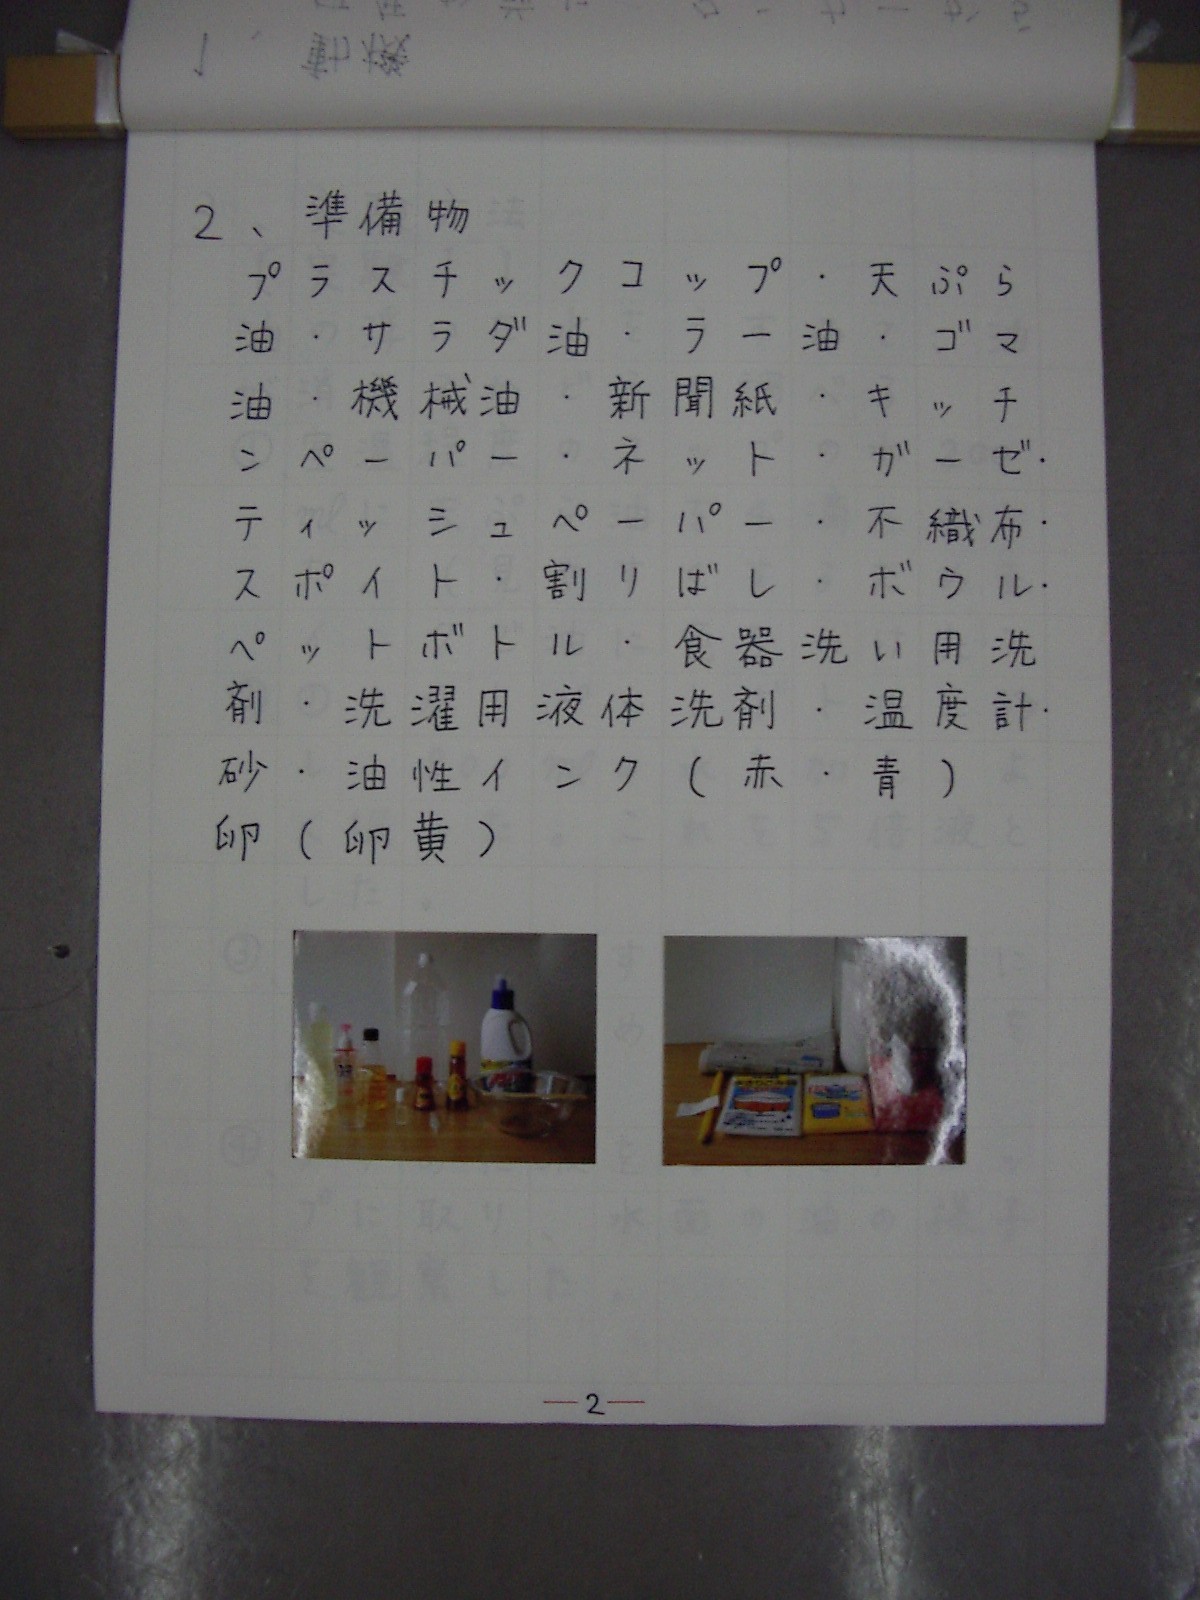 1、動機
2、準備物
プラスチックコップ・天ぷら
油・サラダ油・ラー油・ゴマ
油・機械油・新聞紙・キッチ
ンペーパー・ネット・ガーゼ・
ティッシュペーパー・不織布・
スポイト・割りばし・ボウル・
ペットボトル・食器洗い用洗
剤・洗濯用液体洗剤・温度計・
砂・油性インク(赤・青)
卵(卵黄)
—2—